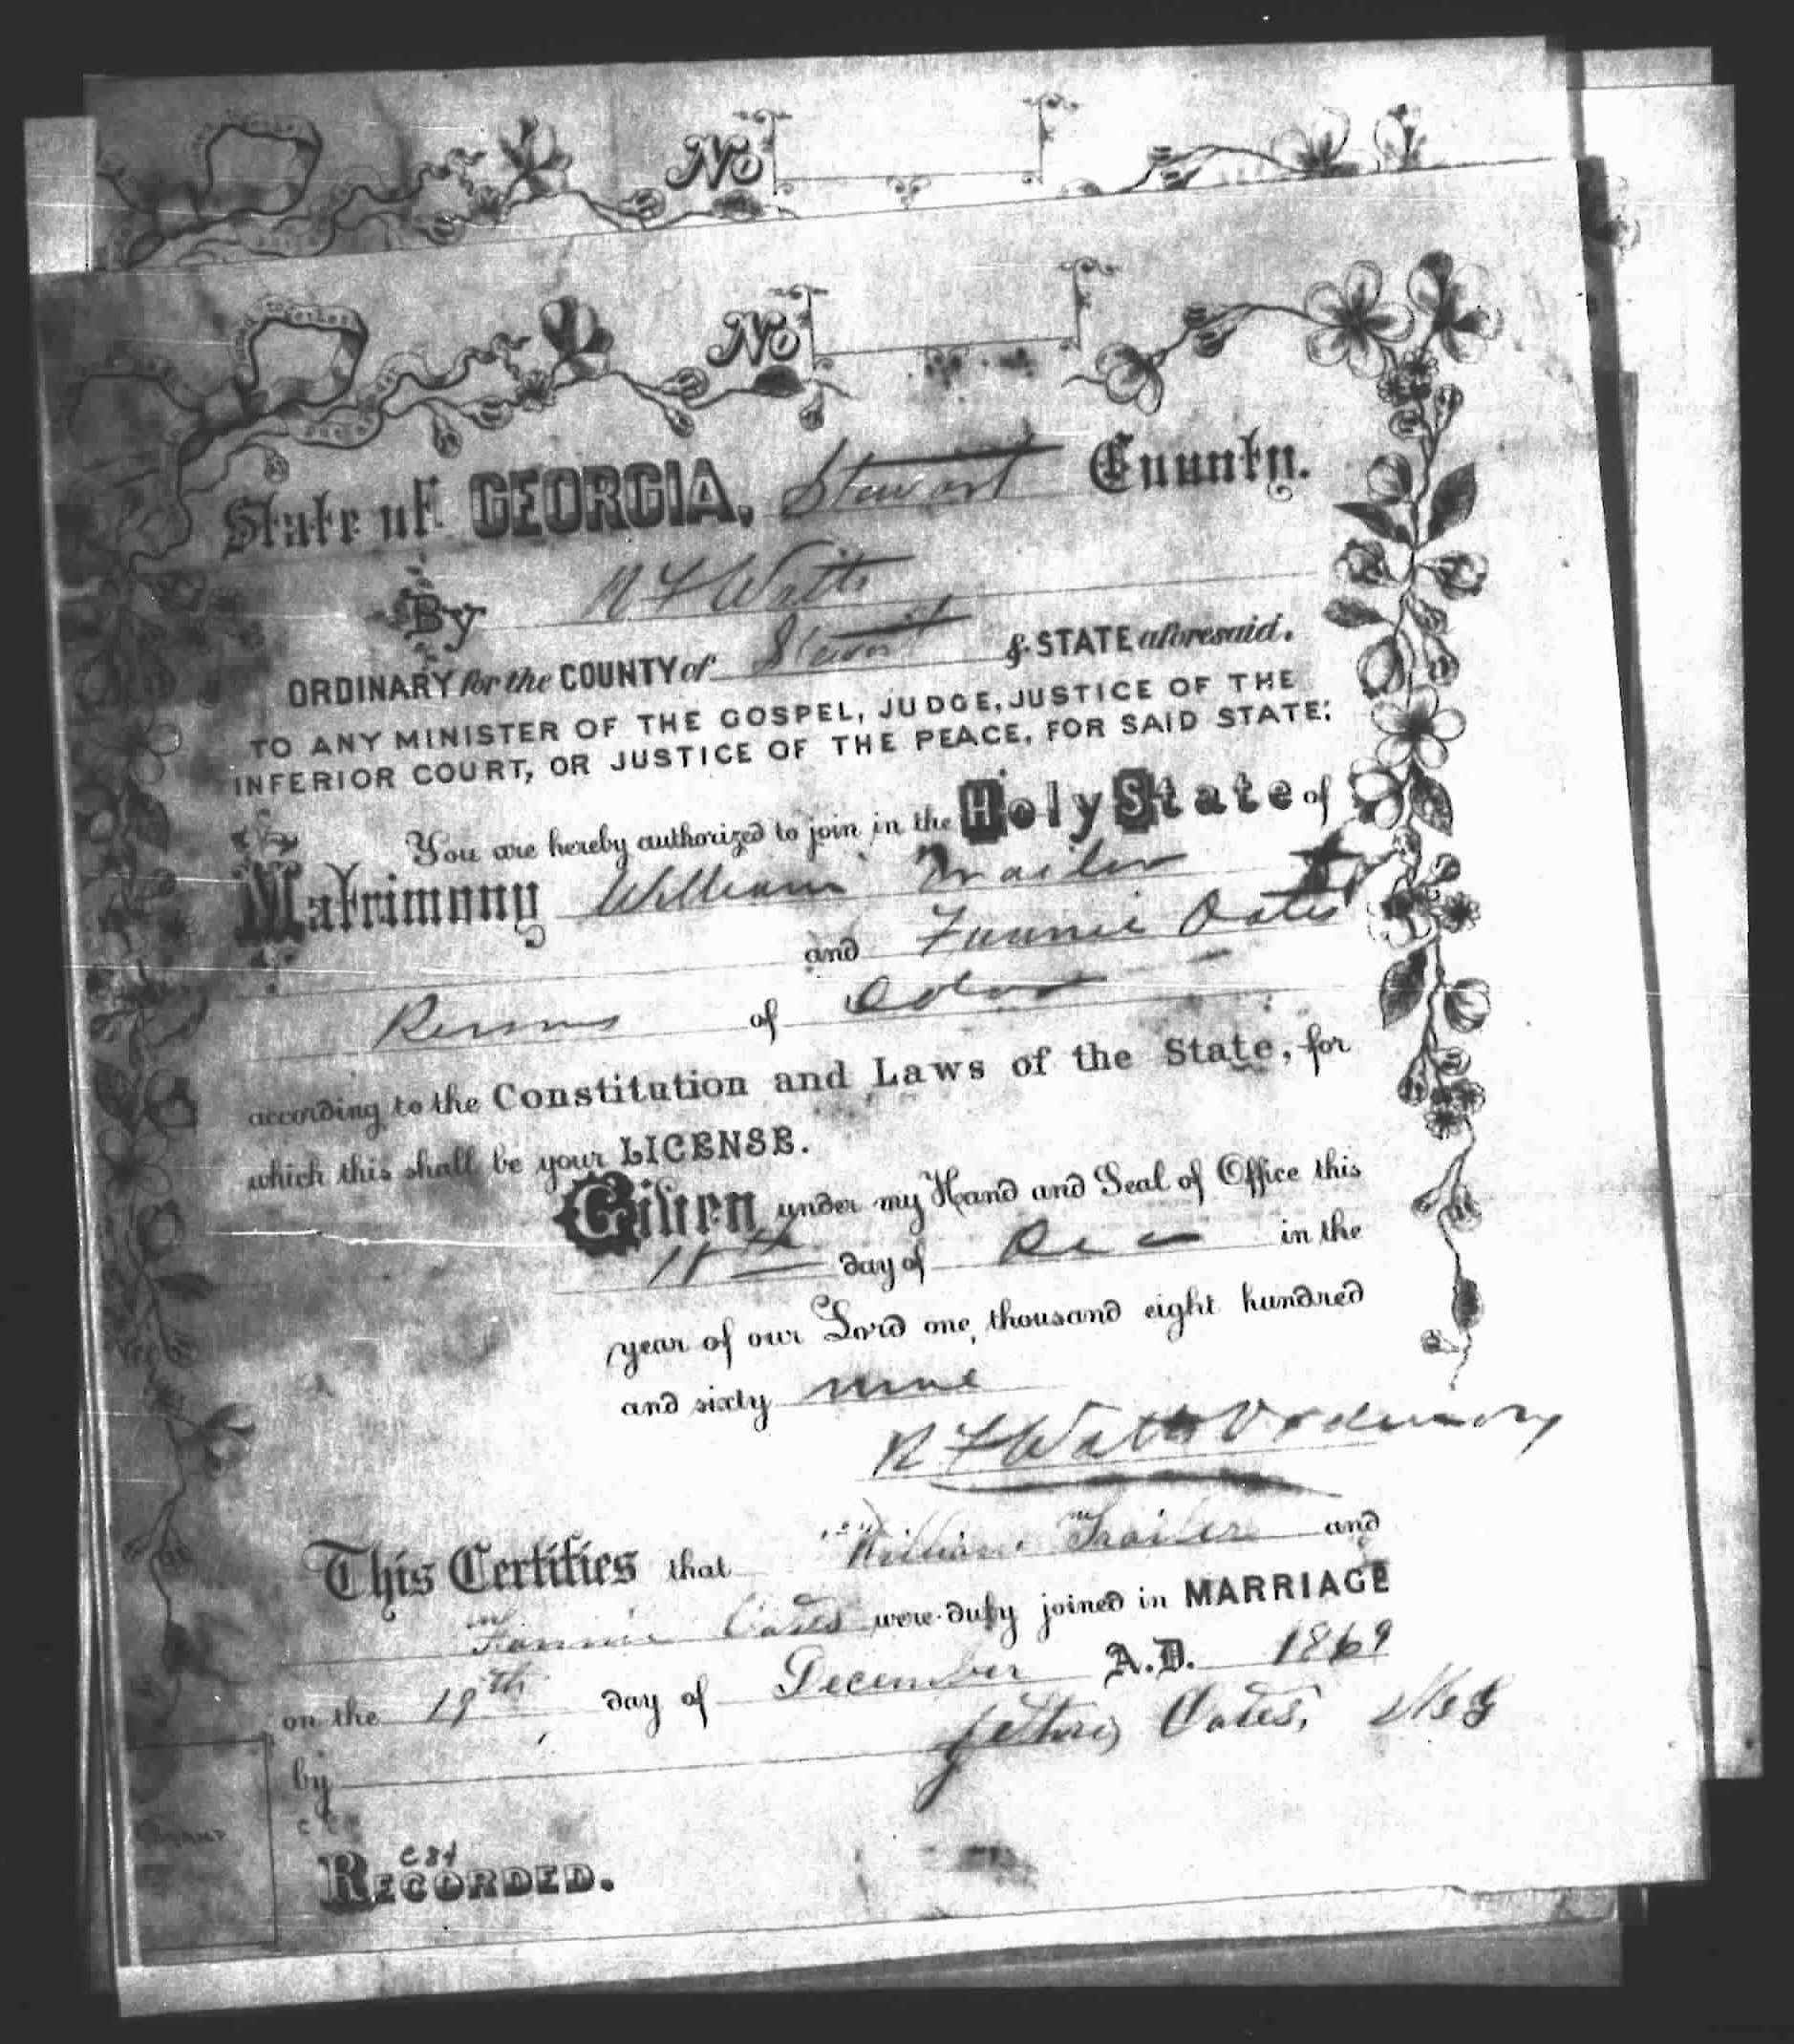 No
No
State of GEORGIA, Stewart County.
By R F Watts
ORDINARY for the COUNTY of Stewart & STATE aforesaid.
TO ANY MINISTER OF THE GOSPEL, JUDGE, JUSTICE OF THE
INFERIOR COURT, OR JUSTICE OF THE PEACE, FOR SAID STATE:
You are hereby authorized to join in the Holy State of
Matrimony William Trailer
and Fannie Oates
Persons of Color
according to the Constitution and Laws of the State, for
which this shall be your LICENSE.
Given under my Hand and Seal of Office this
day of Dec in the
year of our Lord one thousand eight hundred
and sixty nine
R F Watts Ordinary
This Certifies that William Trailer and
Fannie Oates were duly joined in MARRIAGE
on the 19th day of December A.D. 1869
by Oates, M G
C 84
RECORDED.
STAMP